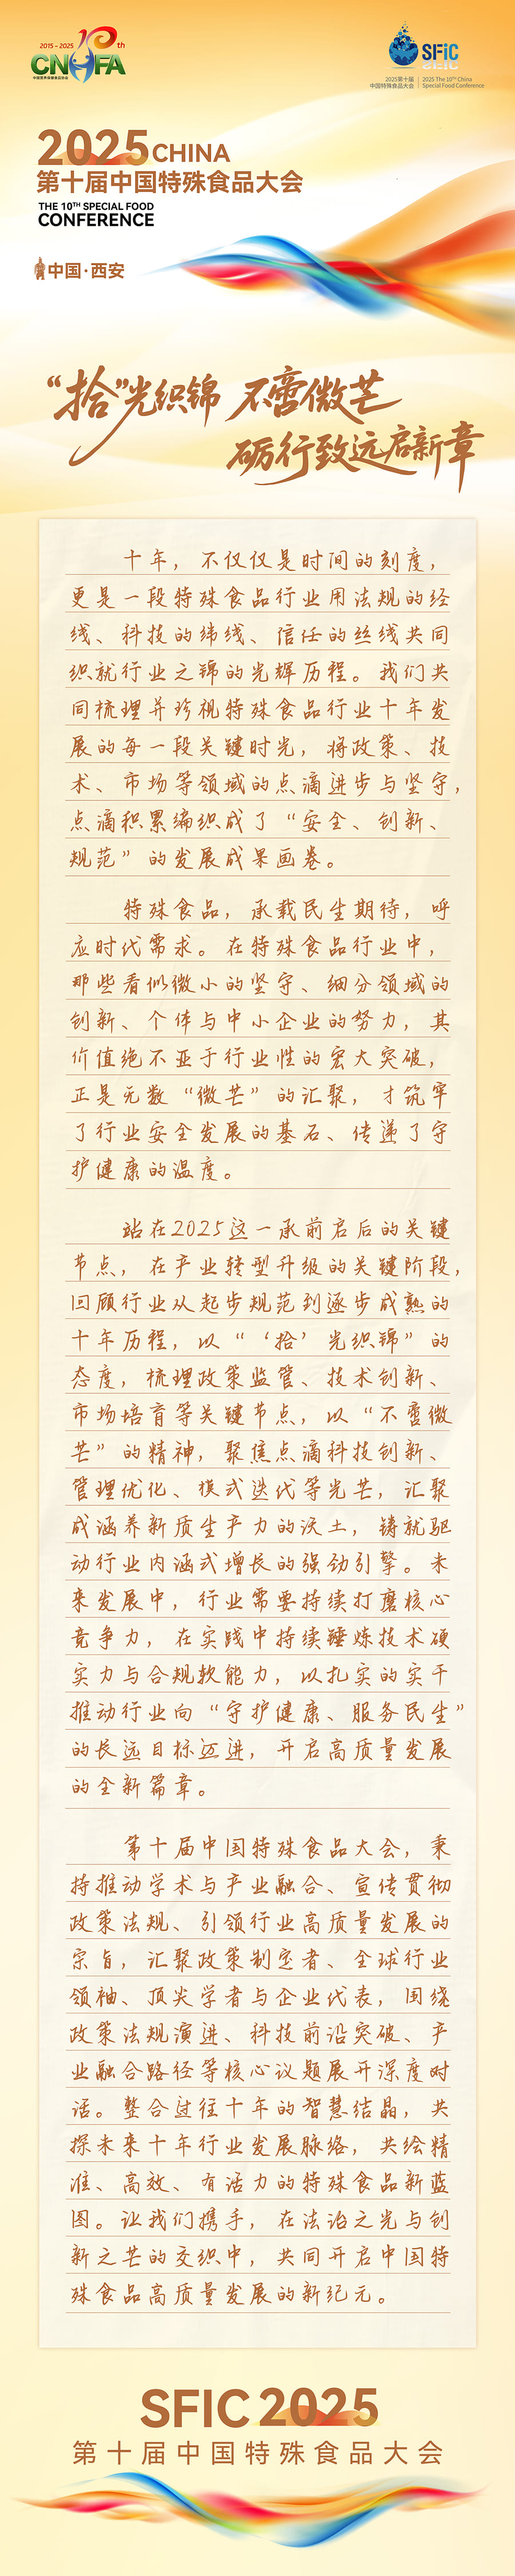 2015-2025 10th
CNHFA
中国营养保健食品协会
SFIC
2025第十届
中国特殊食品大会
2025 The 10TH China
Special Food Conference
2025CHINA
第十届中国特殊食品大会
THE 10TH SPECIAL FOOD
CONFERENCE
中国·西安
“拾”光织锦 不啻微芒
砺行致远启新章
十年，不仅仅是时间的刻度，
更是一段特殊食品行业用法规的经
线、科技的纬线、信任的丝线共同
织就行业之锦的光辉历程。我们共
同梳理并珍视特殊食品行业十年发
展的每一段关键时光，将政策、技
术、市场等领域的点滴进步与坚守，
点滴积累编织成了“安全、创新、
规范”的发展成果画卷。
特殊食品，承载民生期待，呼
应时代需求。在特殊食品行业中，
那些看似微小的坚守、细分领域的
创新、个体与中小企业的努力，其
价值绝不亚于行业性的宏大突破，
正是无数“微芒”的汇聚，才筑牢
了行业安全发展的基石、传递了守
护健康的温度。
站在2025这一承前启后的关键
节点，在产业转型升级的关键阶段，
回顾行业从起步规范到逐步成熟的
十年历程，以“‘拾’光织锦”的
态度，梳理政策监管、技术创新、
市场培育等关键节点，以“不啻微
芒”的精神，聚焦点滴科技创新、
管理优化、模式迭代等光芒，汇聚
成涵养新质生产力的沃土，铸就驱
动行业内涵式增长的强劲引擎。未
来发展中，行业需要持续打磨核心
竞争力，在实践中持续锤炼技术硬
实力与合规软能力，以扎实的实干
推动行业向“守护健康、服务民生”
的长远目标迈进，开启高质量发展
的全新篇章。
第十届中国特殊食品大会，秉
持推动学术与产业融合、宣传贯彻
政策法规、引领行业高质量发展的
宗旨，汇聚政策制定者、全球行业
领袖、顶尖学者与企业代表，围绕
政策法规演进、科技前沿突破、产
业融合路径等核心议题展开深度对
话。整合过往十年的智慧结晶，共
探未来十年行业发展脉络，共绘精
准、高效、有活力的特殊食品新蓝
图。让我们携手，在法治之光与创
新之芒的交织中，共同开启中国特
殊食品高质量发展的新纪元。
SFIC 2025
第十届中国特殊食品大会